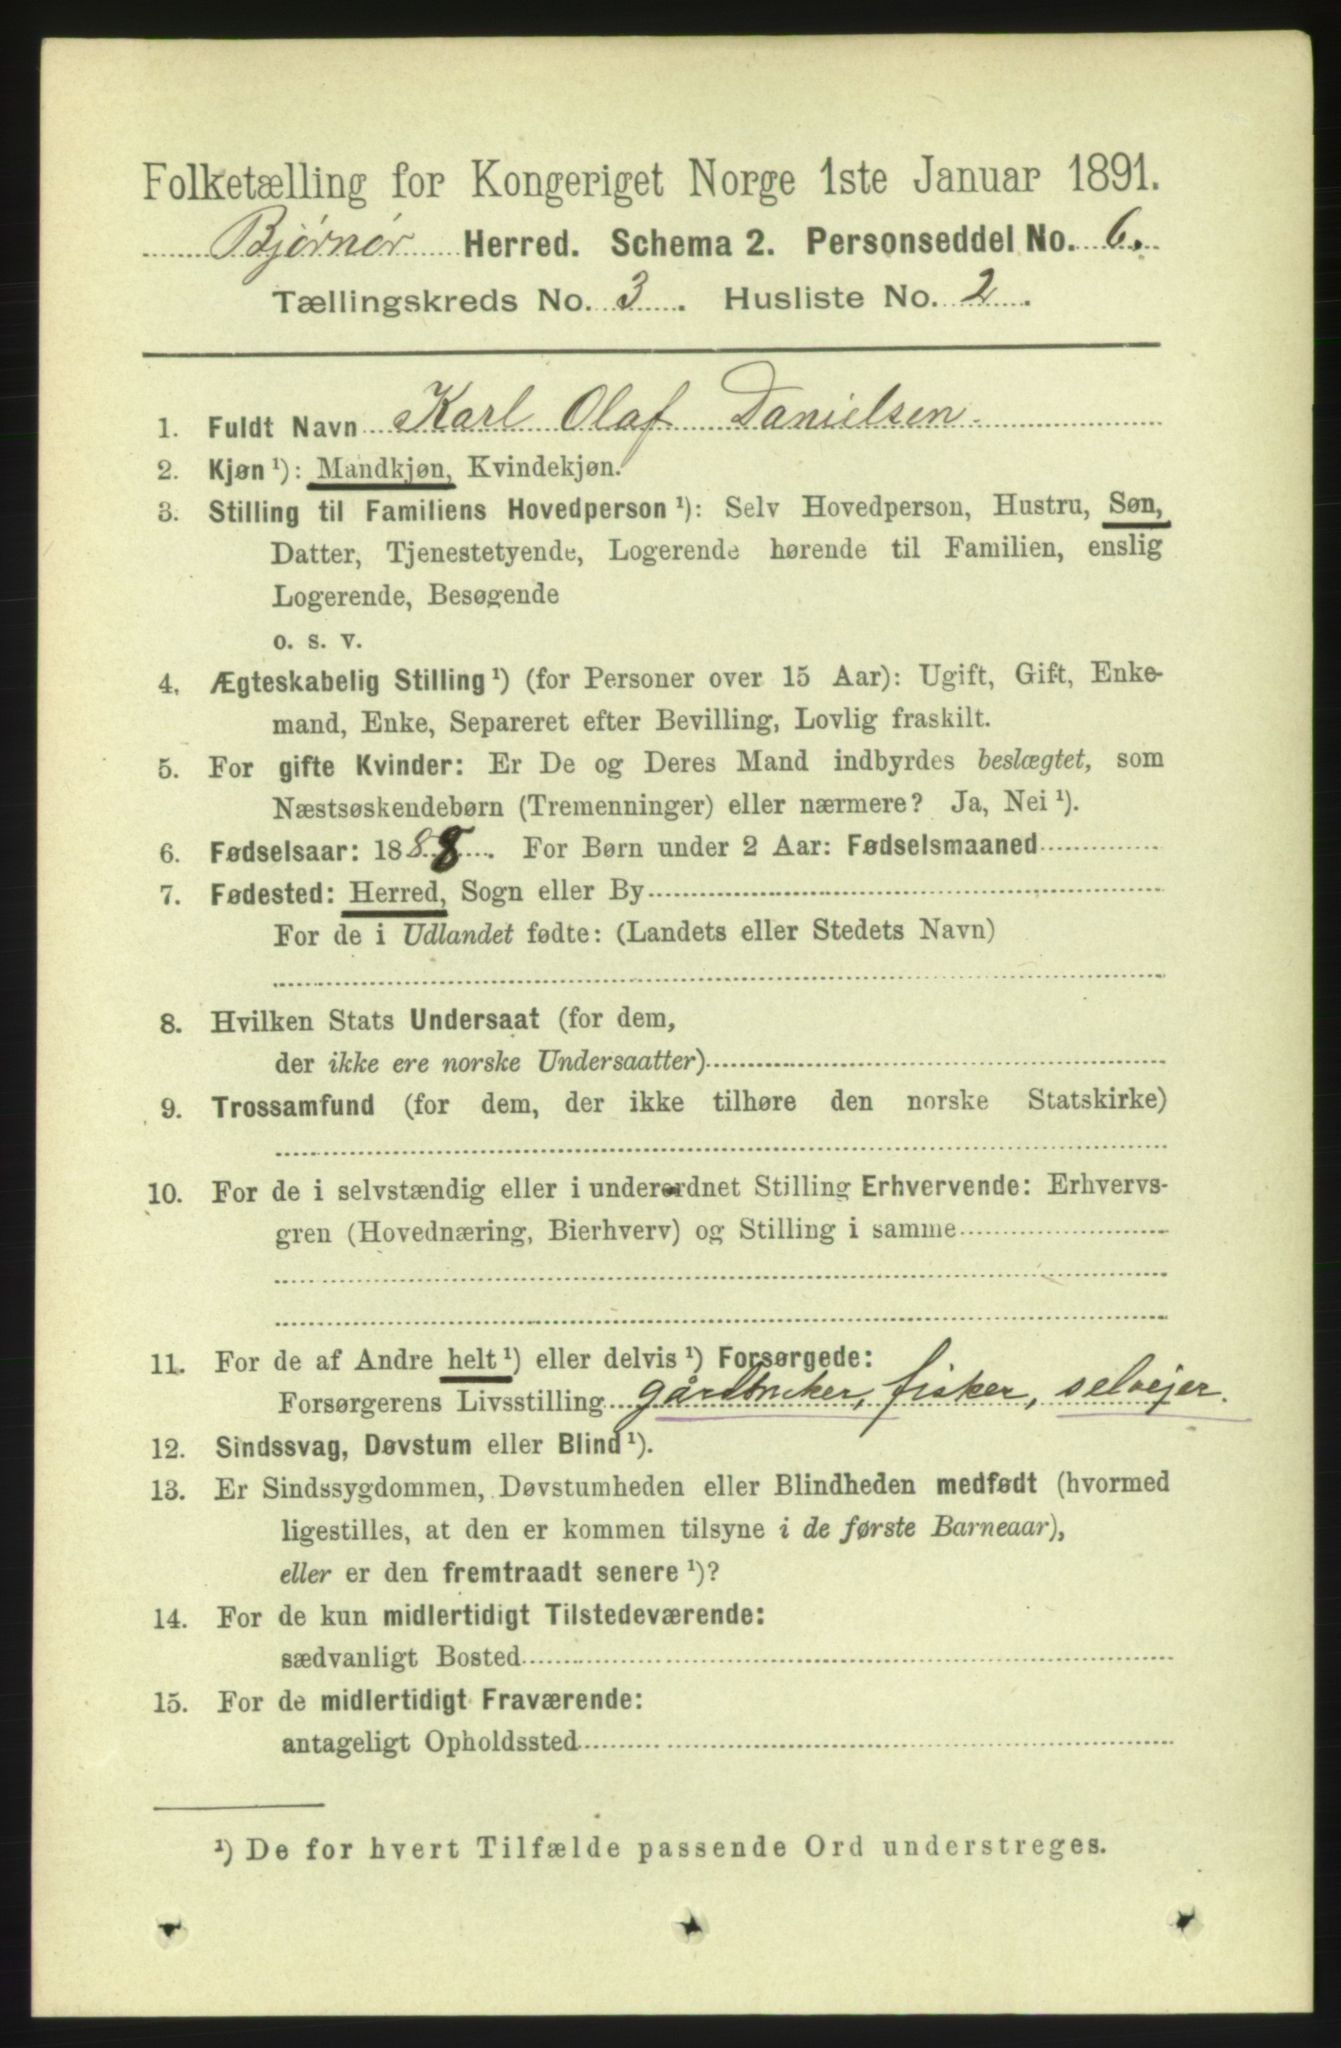 Folketælling for Kongeriget Norge 1ste Januar 1891.
Bjørnør Herred. Schema 2. Personseddel No. 6.
Tællingskreds No. 3. Husliste No. 2.
1. Fuldt Navn Karl Olaf Danielsen.
2. Kjøn ¹): Mandkjøn, Kvindekjøn.
3. Stilling til Familiens Hovedperson ¹): Selv Hovedperson, Hustru, Søn,
Datter, Tjenestetyende, Logerende hørende til Familien, enslig
Logerende, Besøgende
o. s. v.
4. Ægteskabelig Stilling ¹) (for Personer over 15 Aar): Ugift, Gift, Enke-
mand, Enke, Separeret efter Bevilling, Lovlig fraskilt.
5. For gifte Kvinder: Er De og Deres Mand indbyrdes beslægtet, som
Næstsøskendebørn (Tremenninger) eller nærmere? Ja, Nei ¹).
6. Fødselsaar: 1888. For Børn under 2 Aar: Fødselsmaaned
7. Fødested: Herred, Sogn eller By
For de i Udlandet fødte: (Landets eller Stedets Navn)
8. Hvilken Stats Undersaat (for dem,
der ikke ere norske Undersaatter)
9. Trossamfund (for dem, der ikke tilhøre den norske Statskirke)
10. For de i selvstændig eller i underordnet Stilling Erhvervende: Erhvervs-
gren (Hovednæring, Bierhverv) og Stilling i samme
11. For de af Andre helt ¹) eller delvis ¹) Forsørgede:
Forsørgerens Livsstilling gårdbruker, fisker, selveier.
12. Sindssvag, Døvstum eller Blind ¹).
13. Er Sindssygdommen, Døvstumheden eller Blindheden medfødt (hvormed
ligestilles, at den er kommen tilsyne i de første Barneaar),
eller er den fremtraadt senere ¹)?
14. For de kun midlertidigt Tilstedeværende:
sædvanligt Bosted
15. For de midlertidigt Fraværende:
antageligt Opholdssted
¹) De for hvert Tilfælde passende Ord understreges.